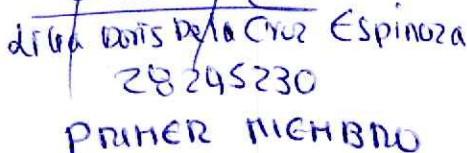 Lilia Doris De La Cruz Espinoza
28245230
PRIMER MIEMBRO